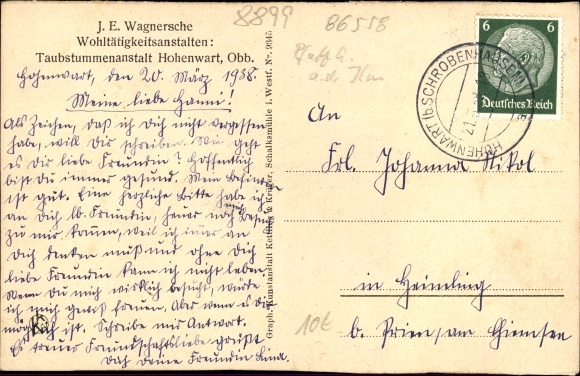 8899
86558
Pfaffh.
a.d. Ilm
J. E. Wagnersche
Wohltätigkeitsanstalten:
Taubstummenanstalt Hohenwart, Obb.
Hohenwart, den 20. März 1938.
Meine liebe Hanni!
Als Zeichen, daß ich Dich nicht vergessen
habe, will Dir schreiben. Wie geht
es Dir liebe Freundin? Hoffentlich
bist Du immer gesund. Mein Befinden
ist gut. Eine herzliche Bitte habe ich
an Dich lb. Freundin, heuer noch Besuch
zu mir kommen, weil ich immer an
Dich denken muß und ohne Dich
liebe Freundin kann ich nicht leben.
Wenn Du mich wirklich besuchst, würde
ich mich gewiß freuen. Aber wenn es Dir
möglich ist. Schreibe mir Antwort.
Es treuer Freundschaftsliebe grüßt
Dich Deine Freundin Lina.
Graph. Kunstanstalt Kettling & Krüger, Schalksmühle i. Westf. Nr. 9345
6 6
Deutsches Reich
HOHENWART (b SCHROBENHAUSEN)
21.
An
Frl. Johanna Nikol
in Heimling
b. Prien/am Chiemsee
10€